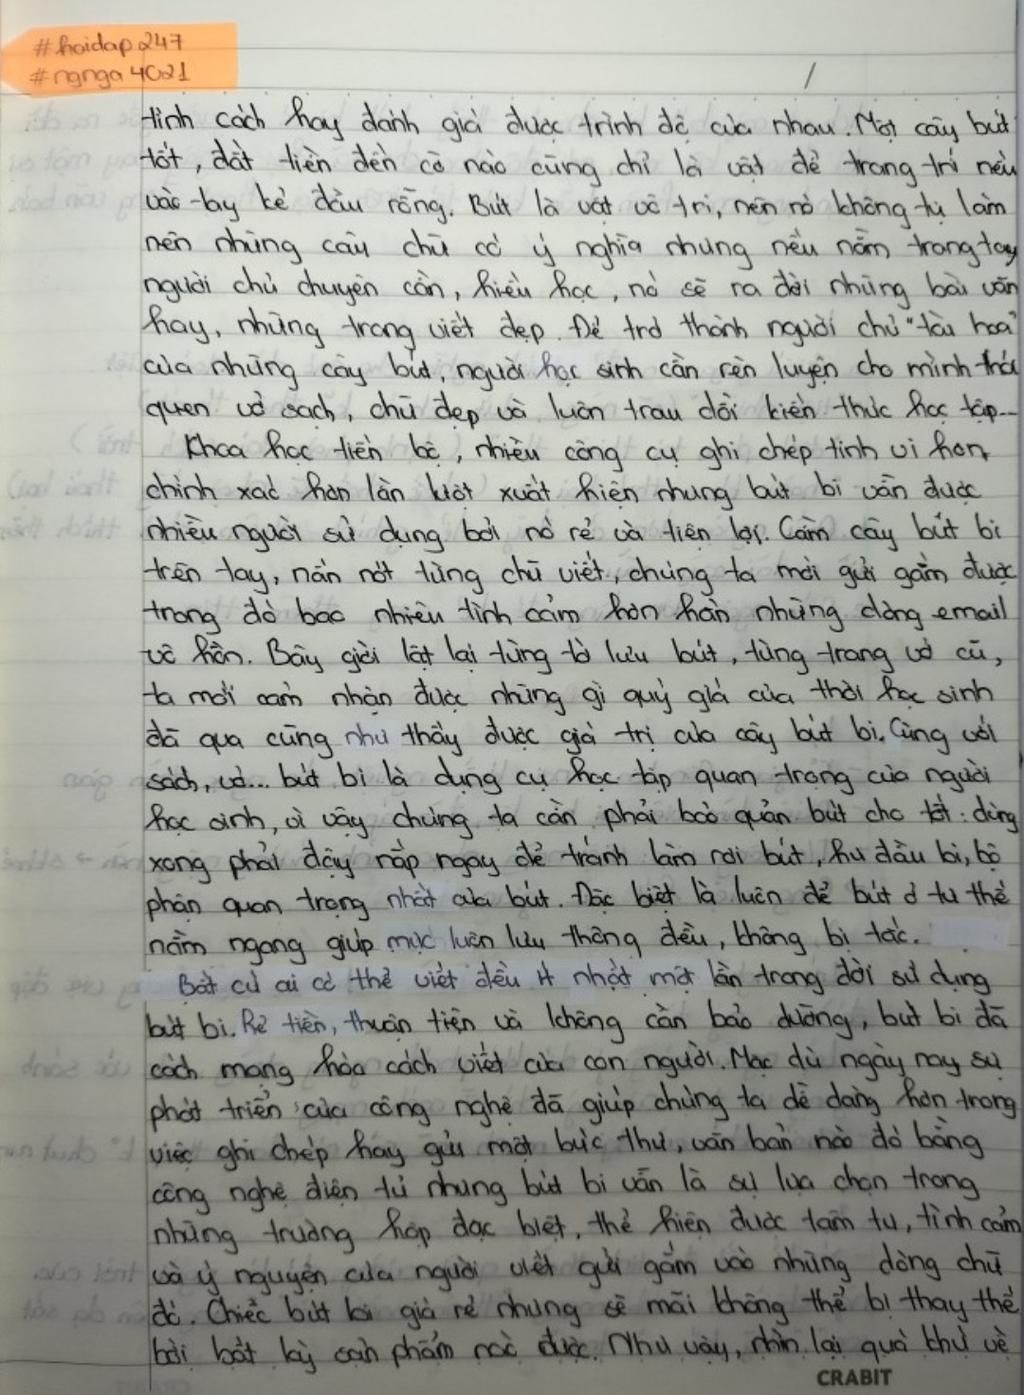 #hoidap247
#ngnga4021
tính cách hay đánh giá được trình độ của nhau. Một cây bút
tốt, đắt tiền đến cỡ nào cũng chỉ là vật để trang trí nếu
vào tay kẻ đầu rỗng. Bút là vật vô tri, nên nó không tự làm
nên những câu chữ có ý nghĩa nhưng nếu nằm trong tay
người chủ chuyên cần, hiếu học, nó sẽ ra đời những bài văn
hay, những trang viết đẹp. Để trở thành người chủ "tài hoa"
của những cây bút, người học sinh cần rèn luyện cho mình thói
quen vở sạch, chữ đẹp và luôn trau dồi kiến thức học tập...
Khoa học tiến bộ, nhiều công cụ ghi chép tinh vi hơn,
chính xác hơn lần lượt xuất hiện nhưng bút bi vẫn được
nhiều người sử dụng bởi nó rẻ và tiện lợi. Cầm cây bút bi
trên tay, nắn nót từng chữ viết, chúng ta mới gửi gắm được
trong đó bao nhiêu tình cảm hơn hẳn những dòng email
vô hồn. Bây giờ lật lại từng tờ lưu bút, từng trang vở cũ,
ta mới cảm nhận được những gì quý giá của thời học sinh
đã qua cũng như thấy được giá trị của cây bút bi. Cùng với
sách, vở... bút bi là dụng cụ học tập quan trọng của người
học sinh, vì vậy chúng ta cần phải bảo quản bút cho tốt: dùng
xong phải đậy nắp ngay để tránh làm rơi bút, hư đầu bi, bộ
phận quan trọng nhất của bút. Đặc biệt là luôn để bút ở tư thế
nằm ngang giúp mực luôn lưu thông đều, không bị tắc.
Bất cứ ai có thể viết đều ít nhất một lần trong đời sử dụng
bút bi. Rẻ tiền, thuận tiện và không cần bảo dưỡng, bút bi đã
cách mạng hóa cách viết của con người. Mặc dù ngày nay sự
phát triển của công nghệ đã giúp chúng ta dễ dàng hơn trong
việc ghi chép hay gửi một bức thư, văn bản nào đó bằng
công nghệ điện tử nhưng bút bi vẫn là sự lựa chọn trong
những trường hợp đặc biệt, thể hiện được tâm tư, tình cảm
và ý nguyện của người viết gửi gắm vào những dòng chữ
đó. Chiếc bút bi giá rẻ nhưng sẽ mãi không thể bị thay thế
bởi bất kỳ sản phẩm nào được. Như vậy, nhìn lại quá khứ về
CRABIT